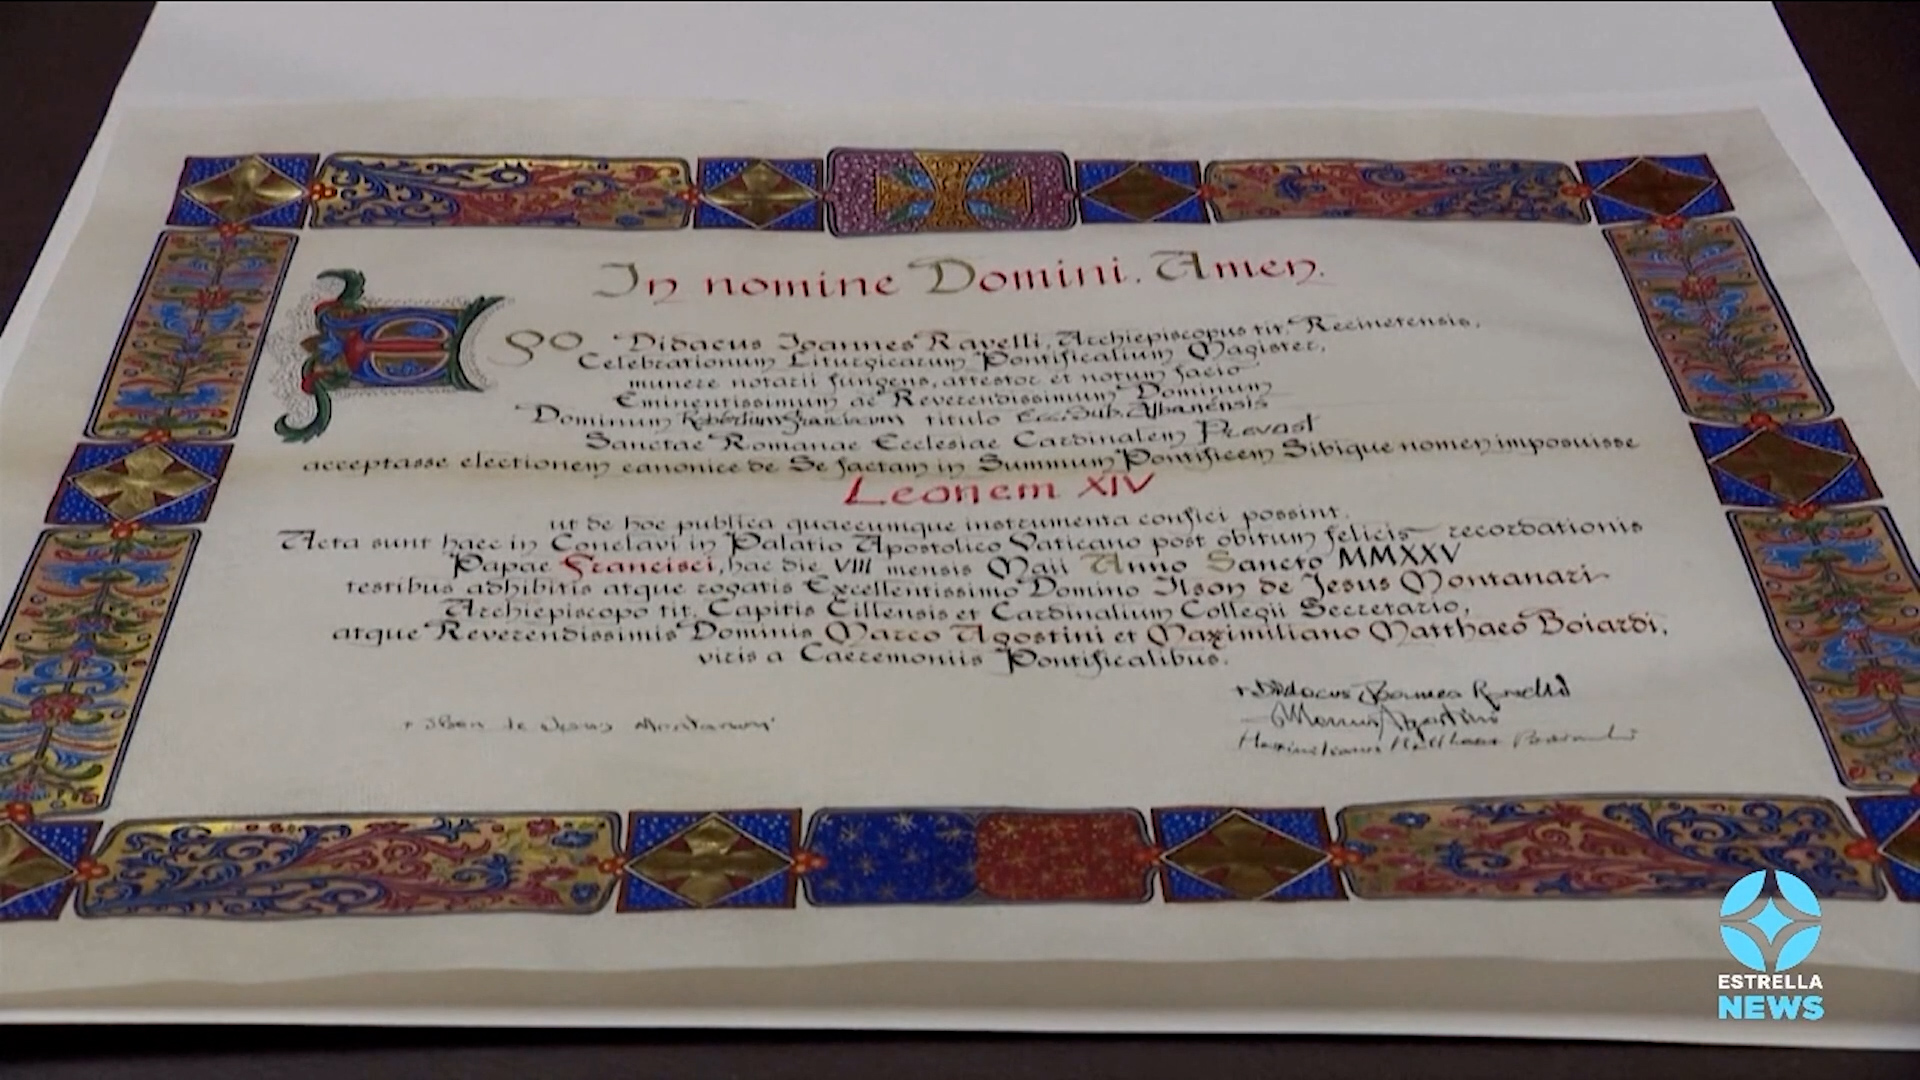 In nomine Domini. Amen.
EGO Didacus Ioannes Ravelli, Archiepiscopus tit. Recinetensis,
Celebrationum Liturgicarum Pontificalium Magister,
munere notarii fungens, attestor et notum facio
Eminentissimum ac Reverendissimum Dominum
Dominum Robertum Franciscum titulo Ecc. Sub. Albanensis
Sanctae Romanae Ecclesiae Cardinalem Prevost
acceptasse electionem canonice de Se factam in Summum Pontificem Sibique nomen imposuisse
Leonem XIV
ut de hoc publica quaecumque instrumenta confici possint.
Acta sunt haec in Conclavi in Palatio Apostolico Vaticano post obitum felicis recordationis
Papae Francisci, hac die VIII mensis Maii Anno Sancto MMXXV
testibus adhibitis atque rogatis Excellentissimo Domino Ilson de Jesus Montanari
Archiepiscopo tit. Capitis Cillensis et Cardinalium Collegii Secretario,
atque Reverendissimis Dominis Marco Agostini et Maximiliano Matthaeo Boiardi,
viris a Caeremoniis Pontificalibus.
+ Didacus Ioannes Ravelli
+ Ilson de Jesus Montanari
Marcus Agostini
Maximilianus Matthaeus Boiardi
ESTRELLA
NEWS